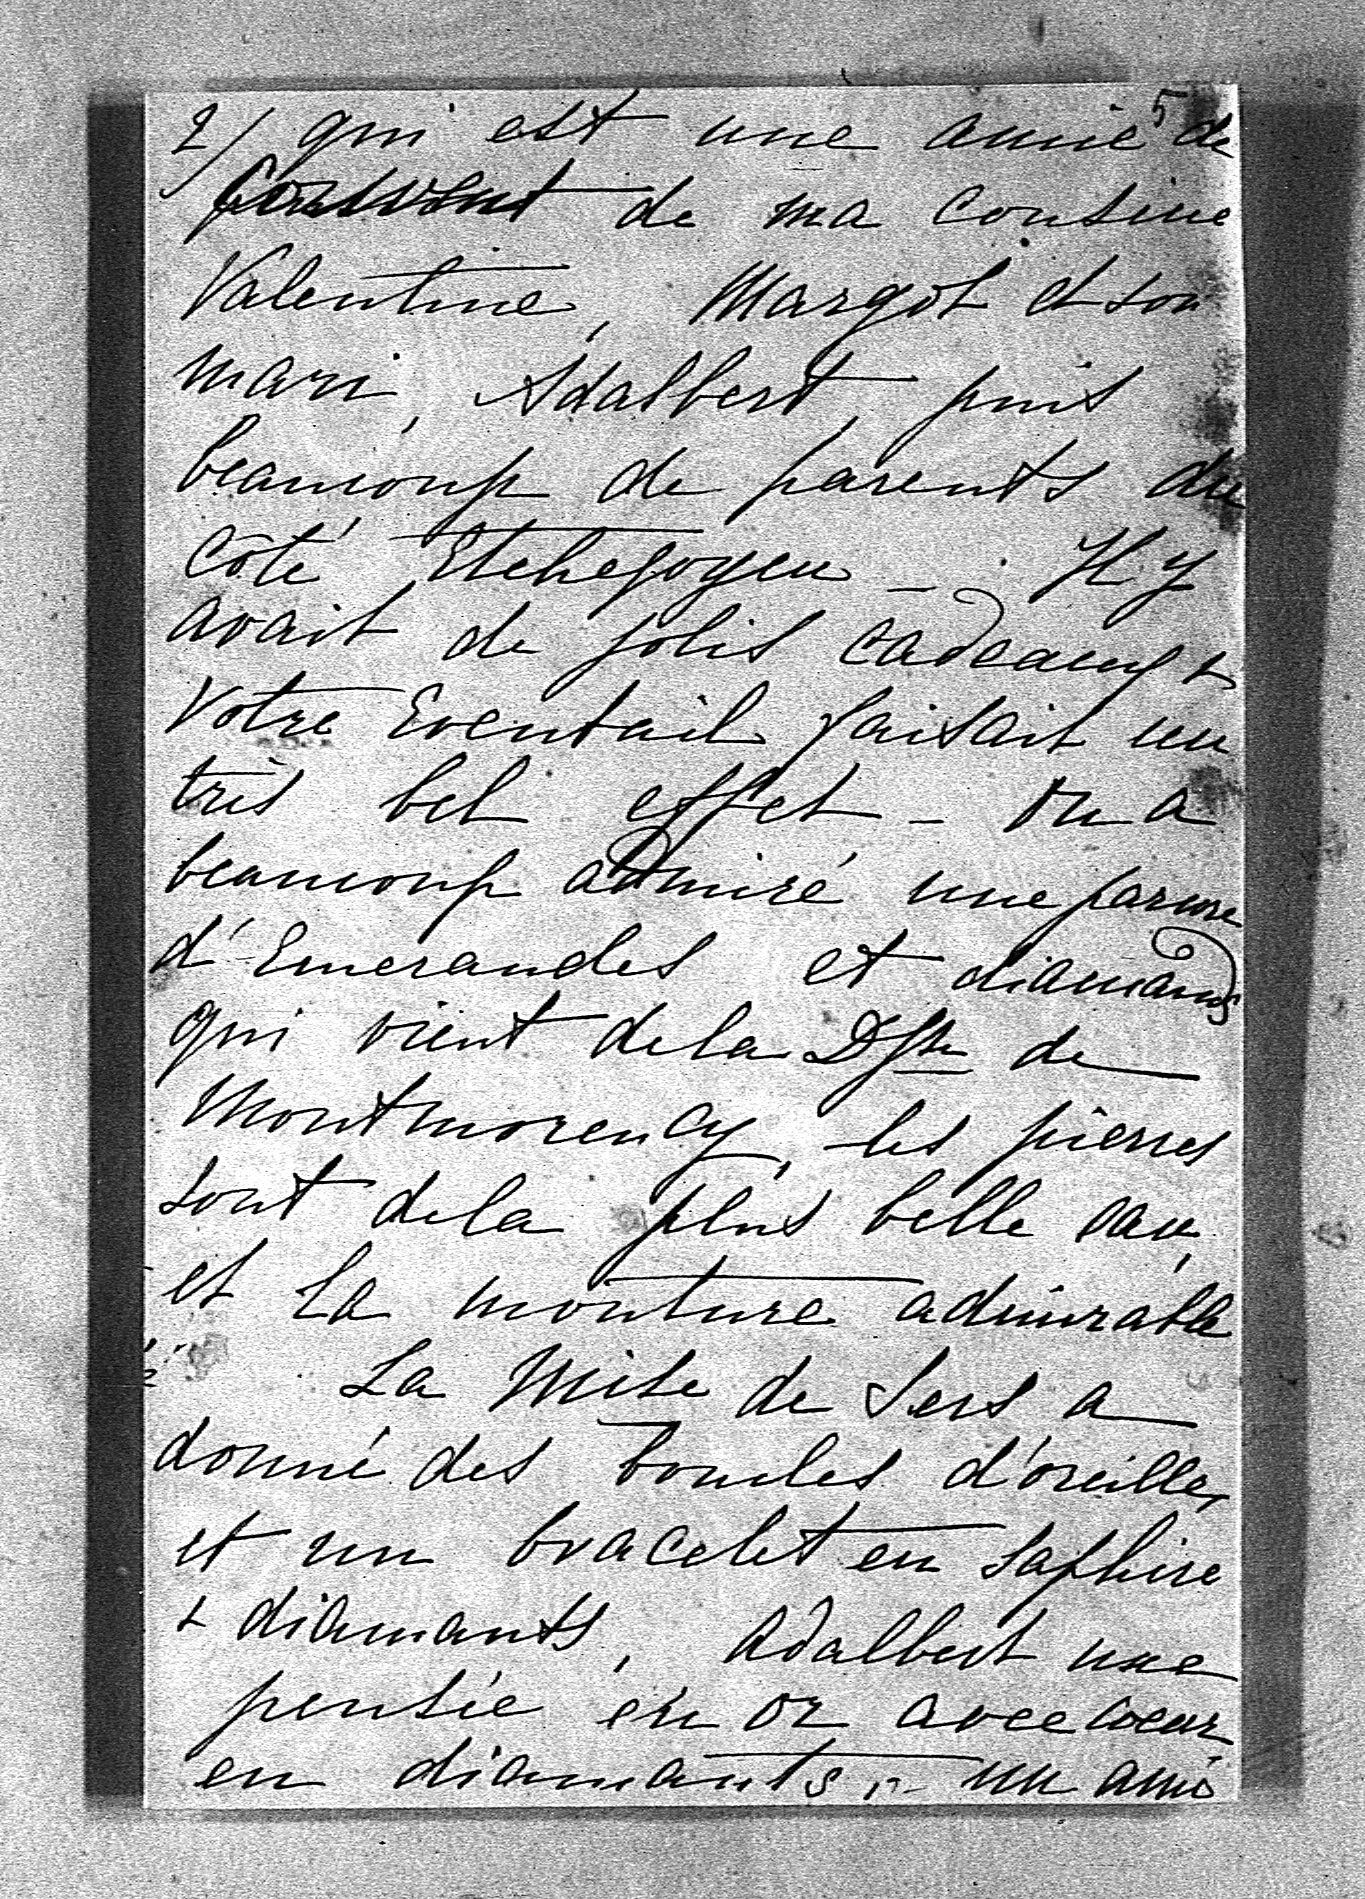 2/ qui est une amie 5 de
Couvent de ma cousine
Valentine, Margot et son
mari, Adalbert, puis
beaucoup de parents du
côté Etchegoyen _ . Il y
avait de jolis cadeaux &
votre Eventail faisait un
très bel effet _ On a
beaucoup admiré une parure
d'Emeraudes et diamands
qui vient de la Dsse de
Montmorency, les pierres
sont de la plus belle eau,
et la monture admirable
La Mise de Sers a
donné des boucles d'oreilles
et un bracelet en saphire
& diamants, Adalbert une
pensée en or avec coeur
en diamants, _ un ami